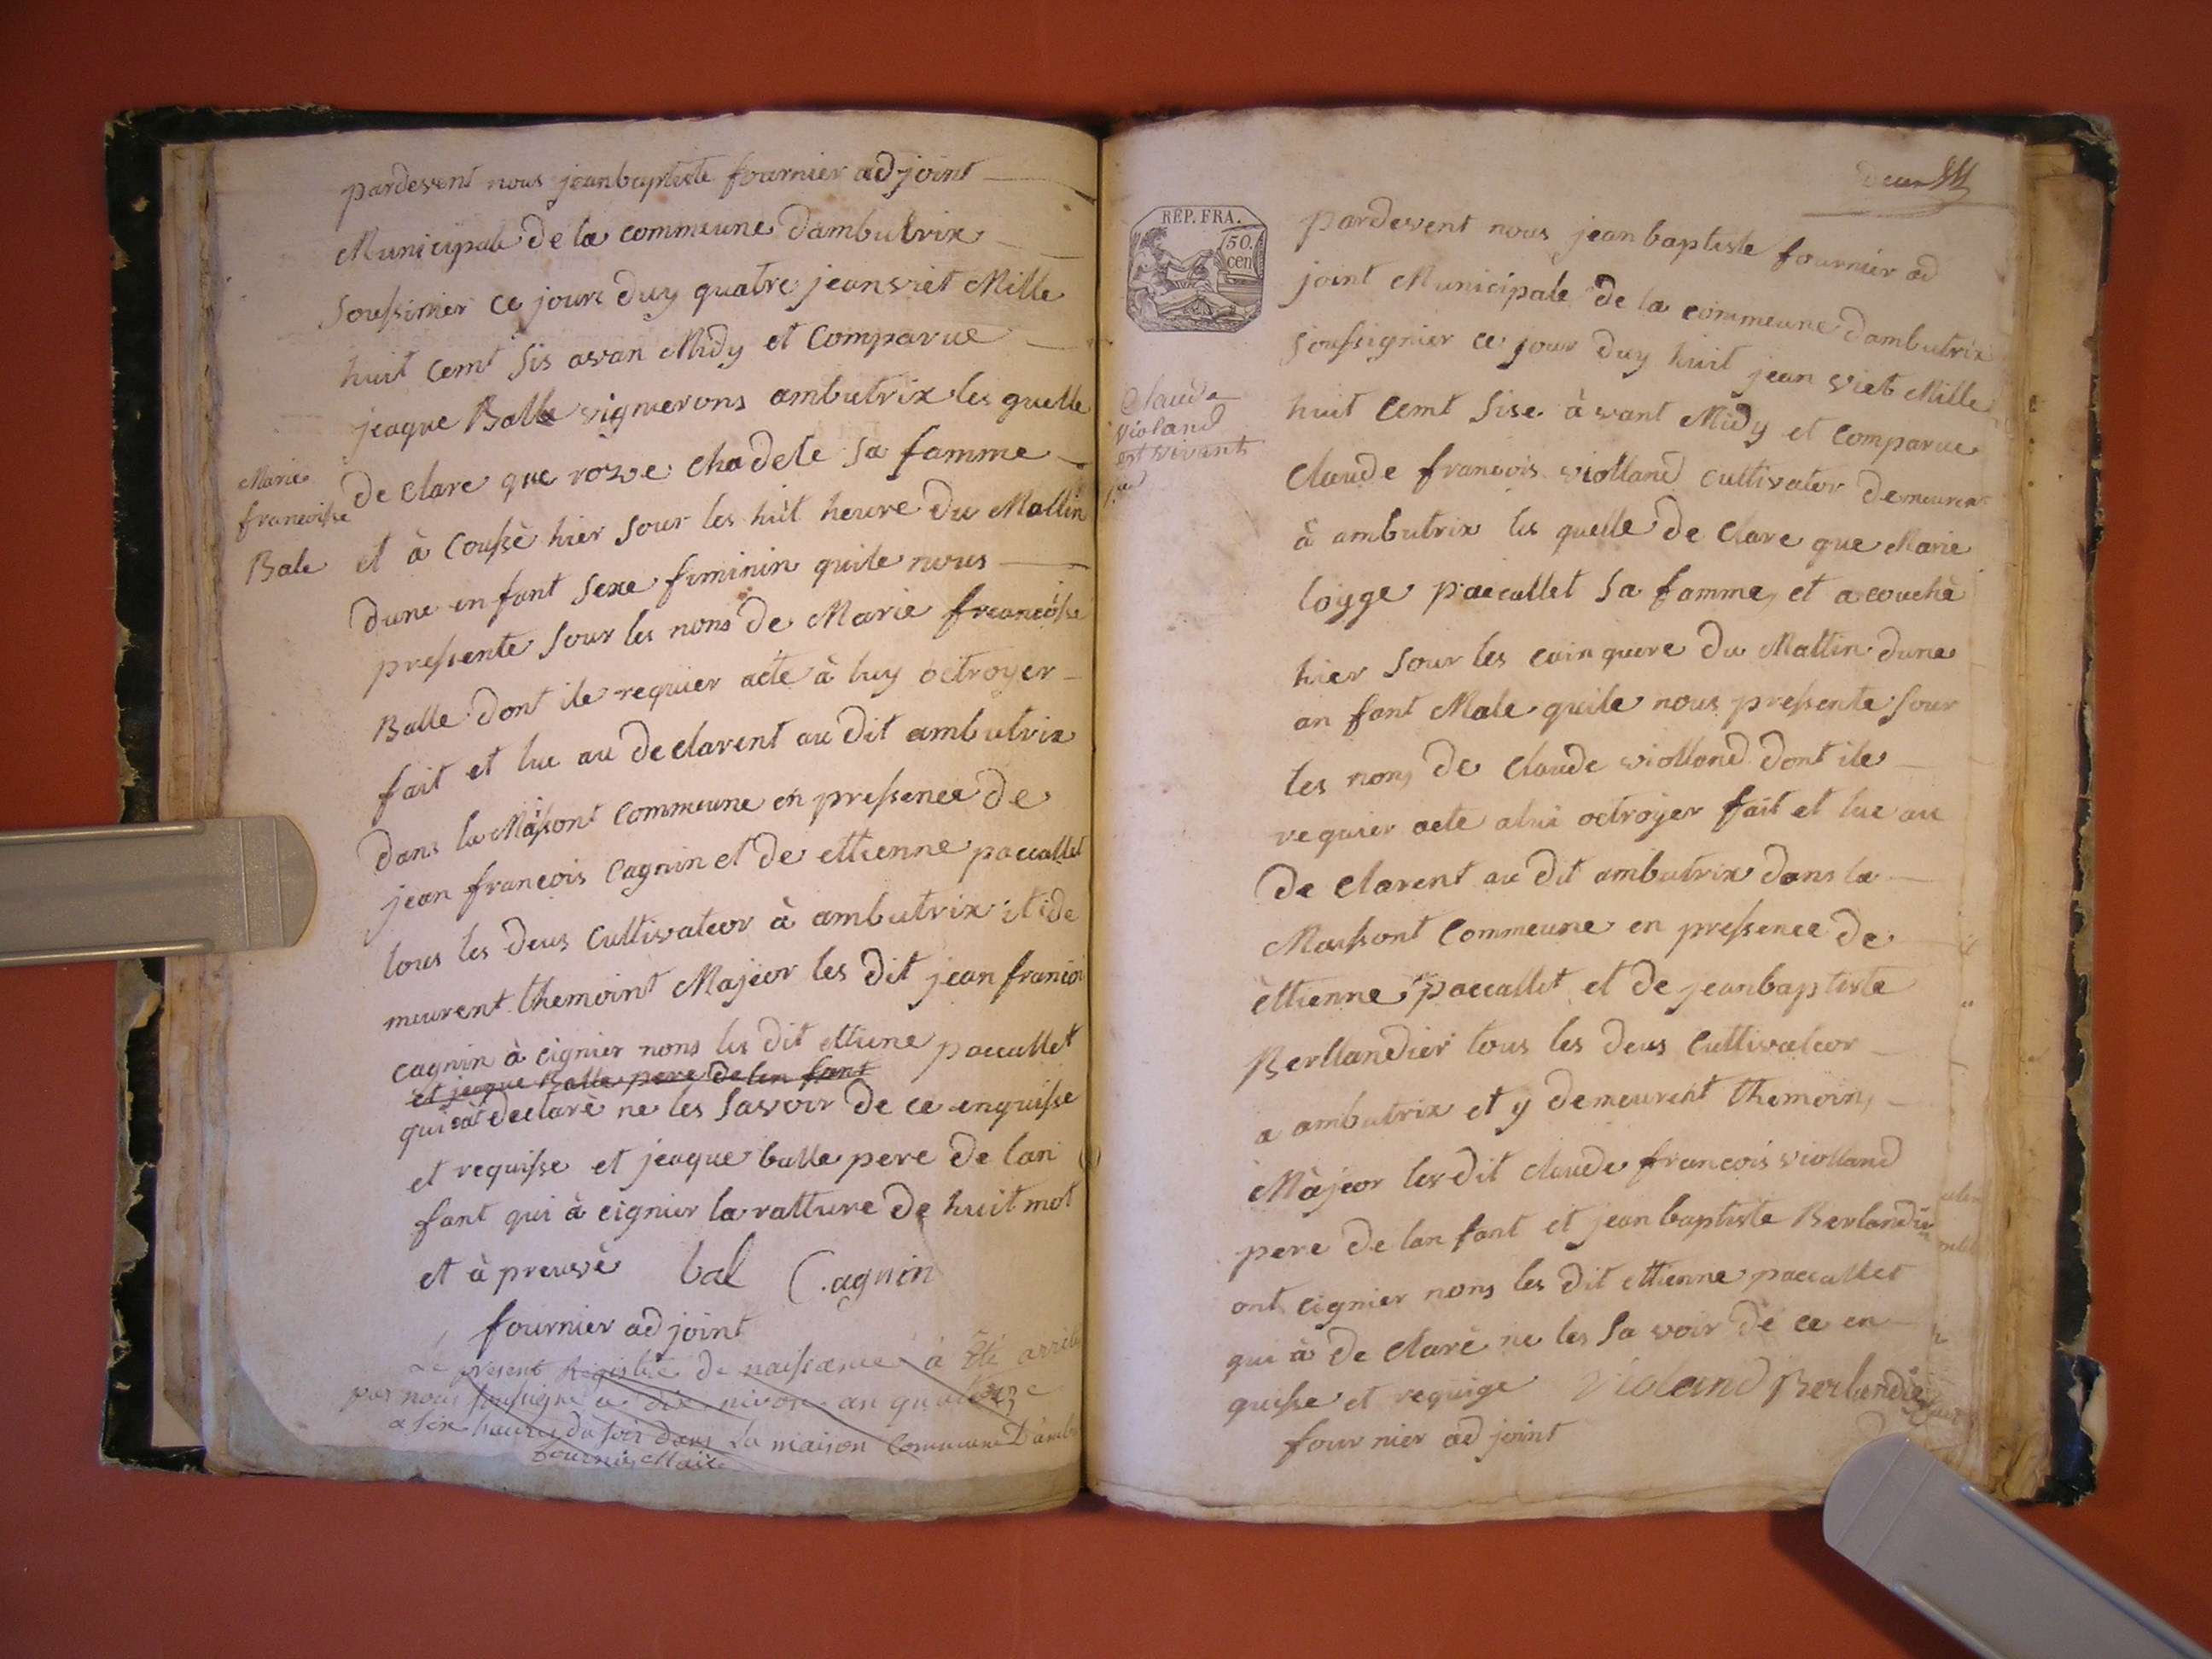 pardevent nous jeanbaptiste fournier adjoint
Municipale de la commeune dambutrix
Soussinier ce jourc duy quatre jeanviet Mille
huit cemt Sis avan Midy et Comparue
jeaque Balle vignierons ambutrix les quelle
de clare que rozve chadele Sa famme
et à Coussè hier Sour les huit heure du Mattin
dune enfant Sexe feminin quile nous
pressente Sour les nons de Marie francoisse
Balle dont ile requier acte à luy octroyer
fait et lue au declarent au dit ambutrix
dans la Massont Commeune en pressence de
jean francois Cagnin et de ettienne paccallet
tous les deus Cultivateor à ambutrix it ide
meurent themoint Majeor les dit jean francoi
cagnin à cignier nons les dit ettiene paccallet
et jeaque Balle pere de lan fant
qui at declarè ne les Savoir de ce enquisse
et requisse et jeaque balle pere de lan
fant qui à cignier la ratture de huit mot
et àpreuvè bal Cagnin
fournier adjoint
Le present Registre de naissance à Été arrête
par nous soussigné ce dix nivose an quatorze
a six heures du soir dans la maison Commune D'ambu
fournier Maire
Marie
francoisse
Bale
deux
REP. FRA.
50.
cen
Claude
violand
est vivant
pardevent nous jean baptiste fournier ad
joint Municipale de la commeune dambutrix
Soussignier ce jour duy huit jean viet Mille
huit Cemt Sise àvant Midy et comparue
Claude francois violland cultivator demeurent
à ambutrix les quelle de Clare que Marie
loyge paccallet Sa famme, et a couchè
hier Sour les cuinquere du Mattin dune
an fant Male quile nous pressente Sour
les nons de Claude violland dont ile
requier acte alui octroyer fait et lue au
de Clarent au dit ambutrix dans la
Massont Commeune en pressence de
èttienne paccallet et de jeanbaptiste
Berllandier tous les deus Cultivateor
a ambutrix et y demeurent themoin,
Màjeor les dit claude francois violland
pere de lan fant et jean baptiste Berlandier
ont cignier nons les dit ettienne paccallet
qui à de Clarè ne les Sa voir de ce en
quisse et requige Violand Berlandie
fournier adjoint